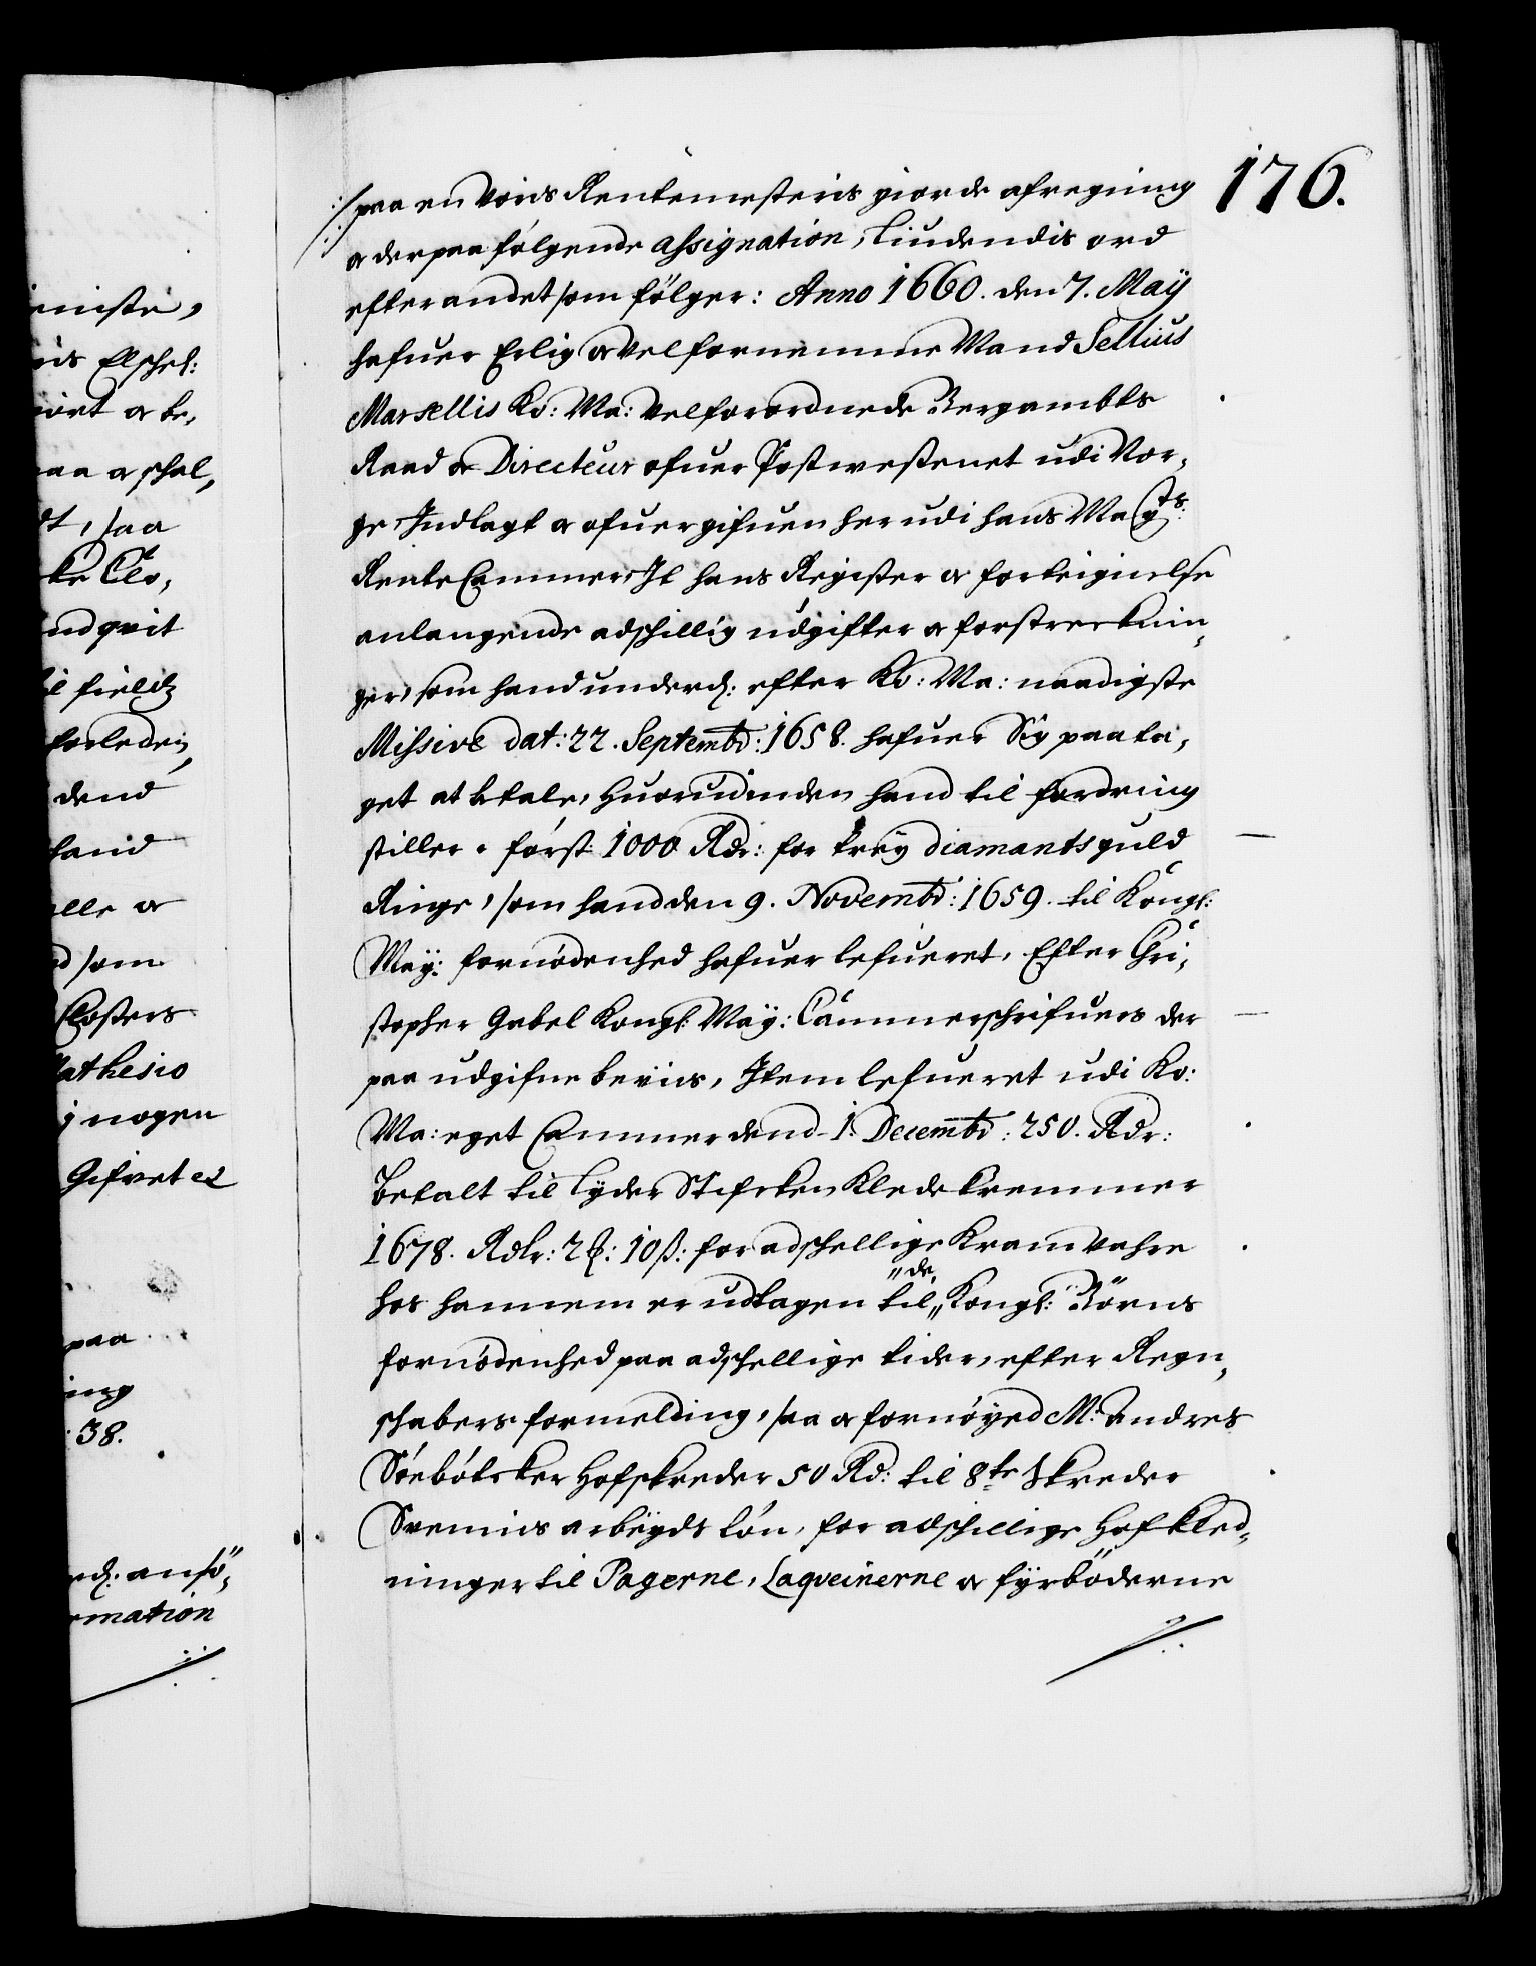 176.
paa en Voris Rentemesteris giorde afregning
og derpaa følgende assignation, liudendis ord
efter andet som følger: Anno 1660. den 7. Maÿ
hafuer Erlig og velfornemme Mand Sellius
Marsellis Ko: Ma: velforordnede Bergambts
Raad og Directeur ofuer Postwesenet udi Nor,
ge, Indlagt og ofuergifuen her udi hans Mayts:
Rente Cammer It hans Register og forteignelse
anlangende adschillig udgifter og forstrecknin,
ger, som hand underd: efter Ko: Ma: naadigste
Missive dat: 22. Septembr: 1658. hafuer Sig paata,
get at betale, Huorudinden hand til fordring
stiller. først 1000 Rdr: for trey diamants guld
Ringe, som hand den 9. Novembr: 1659. til Kongl:
May: fornødenhed hafuer lefueret, Efter Chri,
stopher Gabel Kongl: Maÿ: Cammerschrifuers der
paa udgifne beviis, Item lefueret udi Ko:
Ma: eget Cammer dend 1. Decembr: 250. Rdr:
Betalt til Lyder Stifcken Kledekremmer
1678. Rdlr: 2 ₰: 10 ß: for adschellige Kramvahre
hos hannem er udtagen til "de" Kongl: Børns
fornødenhed paa adschellige tider, efter Regn,
schabers formelding, saa og fornøyed M: Andres
Søebøtcker Hofskreder 50 Rd: til 8te Skreder
Svennis arbeÿds løn, for adschillige Hofkled,
ninger til Pagerne, Laqveinerne og fÿrbøderne
eniste,
ris Elschel:
iort og be,
paa og schal,
dt, saa
ke Clo,
nd qvit
forleden,
dend
hand
alle og
d som
Closters
Mathesio
i nogen
Gifvet ec
paa
ing
: 38.
rd: ansø,
rmation